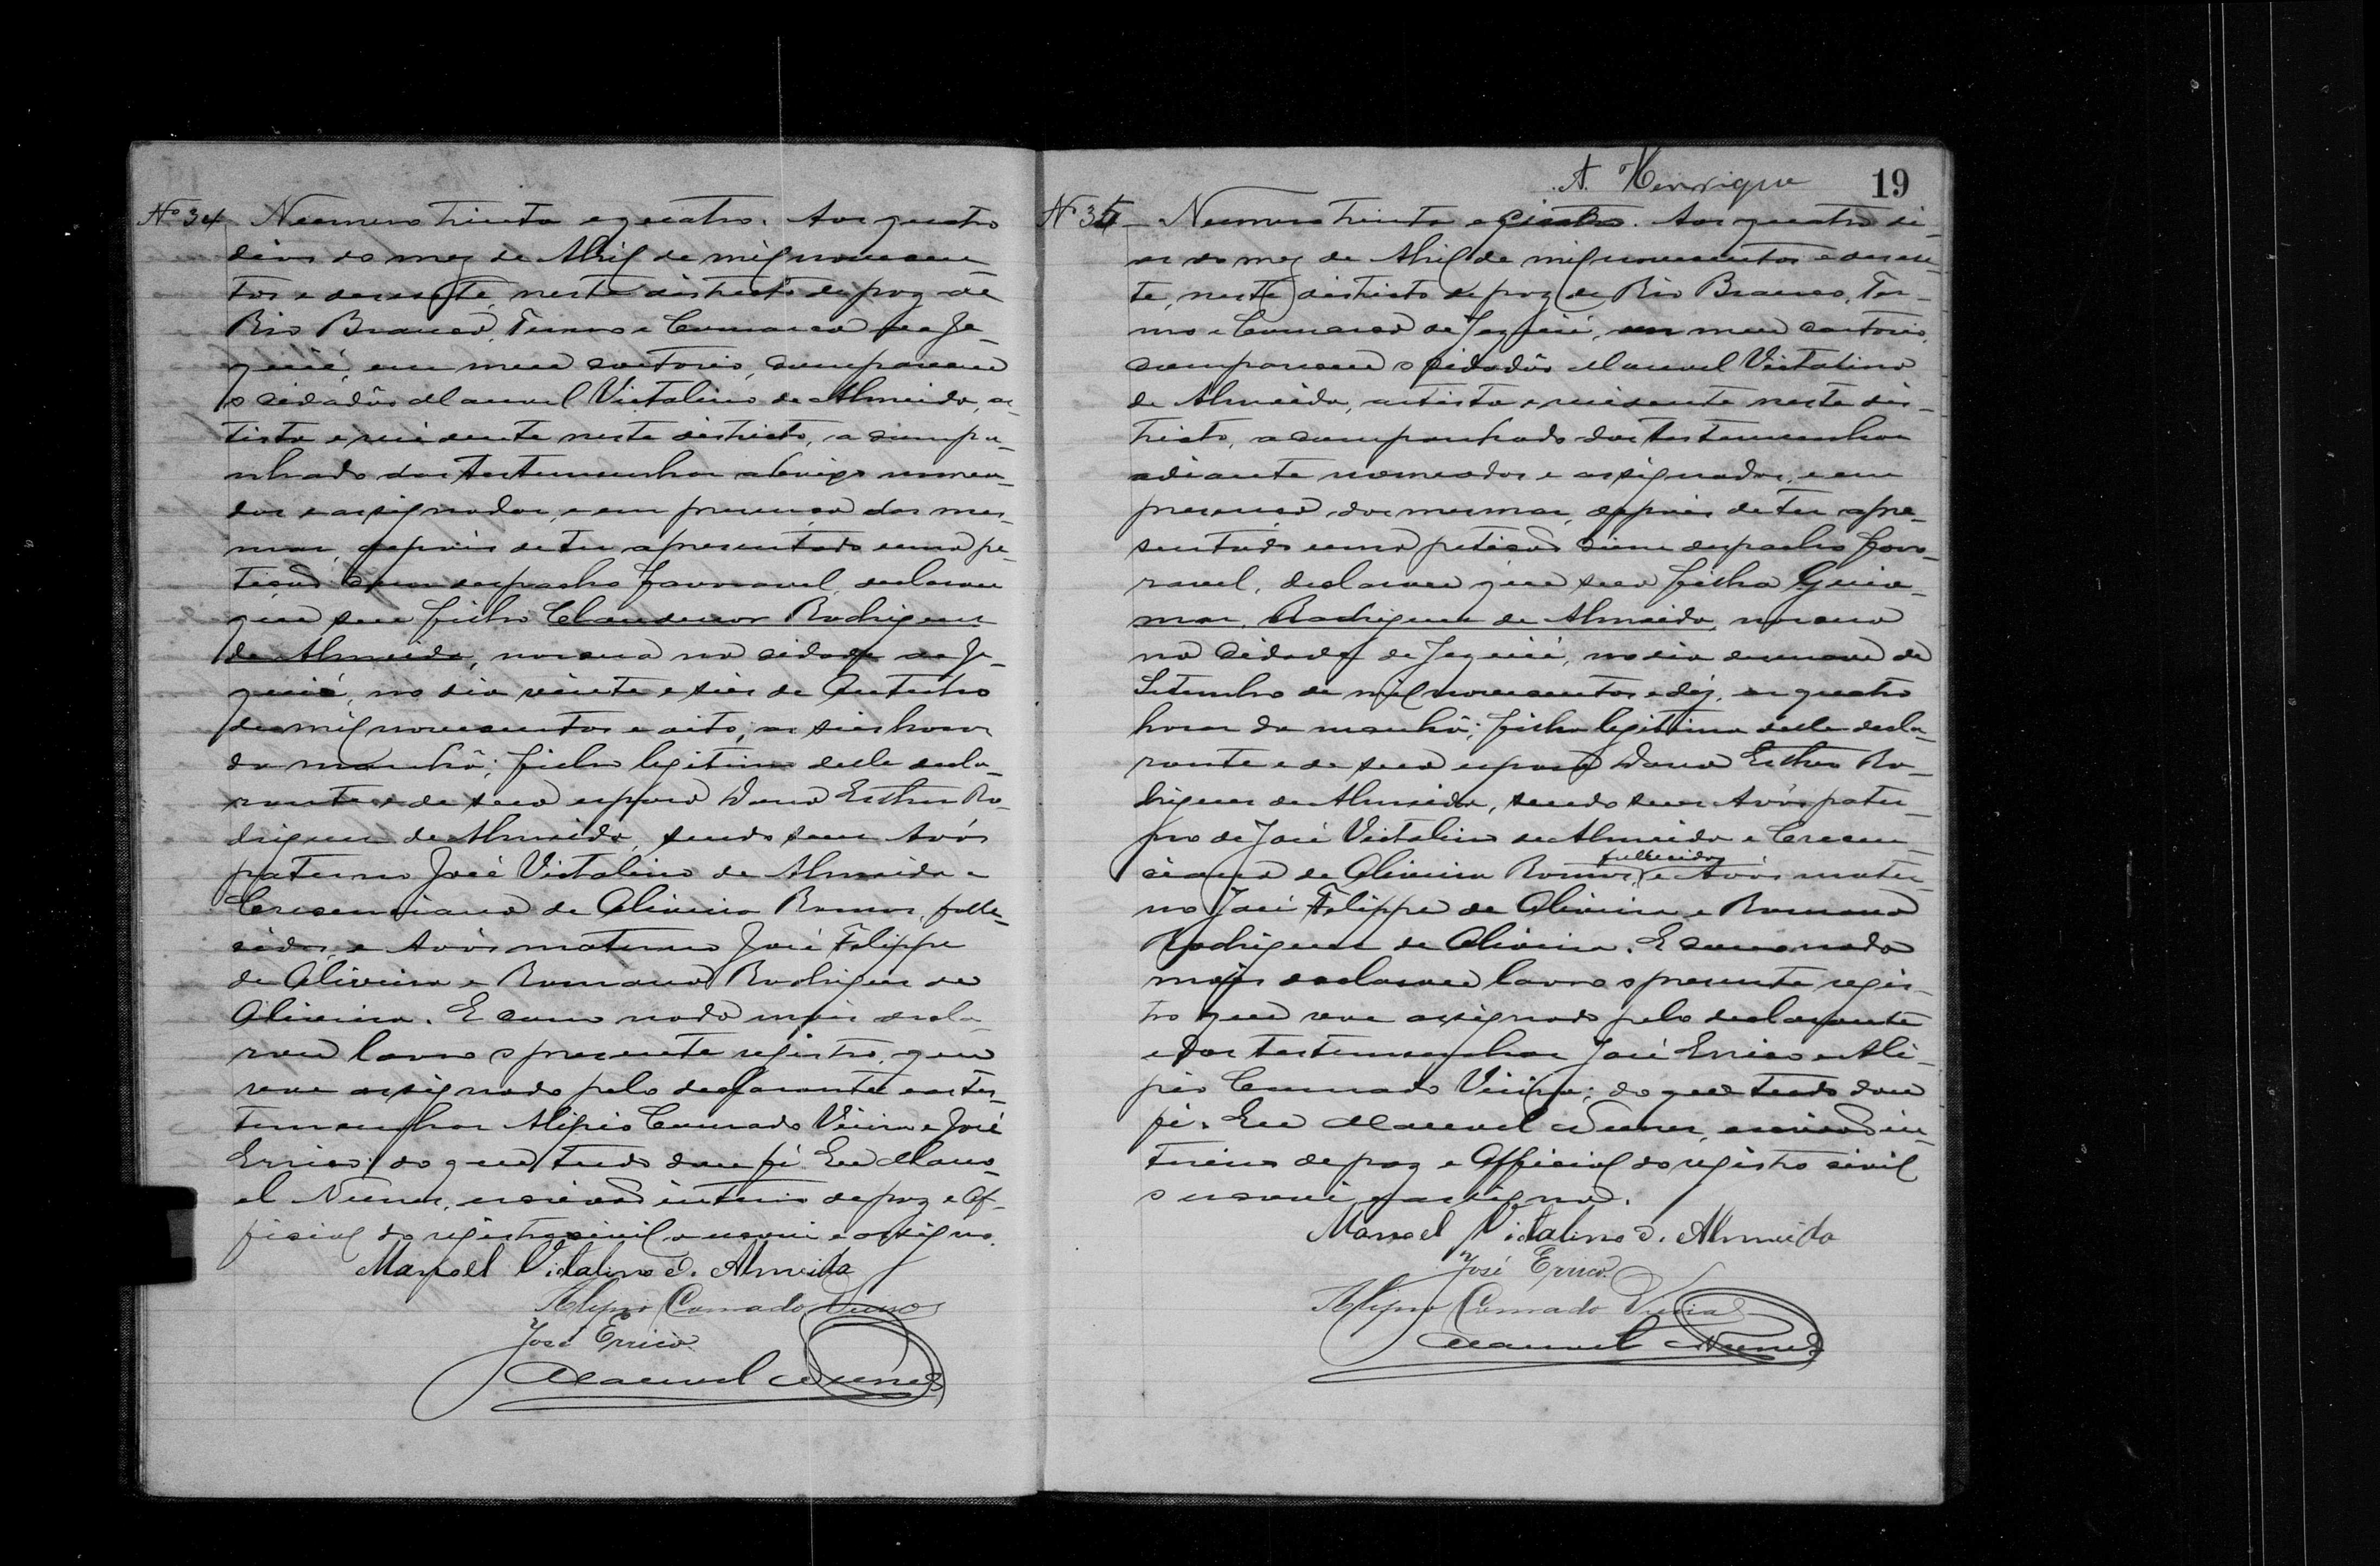 Nº 34 Numero trinta e quatro. Aos quatro
dias do mez de Abril de mil novecen-
tos e desesete, neste districto de paz de
Rio Branco, Termo e Comarca de Je-
quié, em meu cartorio, compareceu
o cidadão Manuel Victalino de Almeida, ar-
tista e residente neste districto, acompa-
nhado das testemunhas abaixo nomea-
das e assignadas, e em presença das mes-
mas, depois de ter apresentado uma pe-
tição com despacho favoravel, declarou
que seu filho Claudenor Rodrigues
de Almeida, nasceu na cidade de Je-
quié, no dia vinte e seis de Outubro
de mil novecentos e oito, as seis horas
da manhã; filho legitimo delle decla-
rante e de sua esposa Dona Esther Ro-
drigues de Almeida, sendo seus Avós
paterno José Victalino de Almeida e
Crescenciana de Oliveira Ramos, falle-
cidos, e Avós materno José Filippe
de Oliveira e Romana Rodrigues de
Oliveira. E como nada mais decla-
rou lavro o presente registro, que
vae assignado pelo declarante e as tes-
temunhas Alipio Camado Vieira e José
Errico; do que tudo dou fé. Eu Manu-
el Nunes, escrivão interino de paz e Of-
ficial do registro civil o escrevi e assigno.
Manoel Vidalino d. Almeida
Alipio Camado Vieira
José Errico
Manuel Nunes
A. Henrique 19
Nº 35 Numero trinta e cinco. Aos quatro di-
as do mez de Abril de mil novecentos e dese-
te, neste districto de paz de Rio Branco, Ter-
mo e Comarca de Jequié, em meu cartorio,
compareceu o cidadão Manuel Victalino
de Almeida, artista e residente neste dis-
tricto, acompanhado das testemunhas
adiante nomeadas e assignadas, e em
presença das mesmas, depois de ter apre-
sentado uma petição com despacho favo-
ravel, declarou que sua filha Guio-
mar Rodrigues de Almeida, nasceu
na Cidade de Jequié, no dia desenove de
Setembro de mil novecentos e dez, as quatro
horas da manhã; filha legitima delle decla-
rante e de sua esposa Dona Esther Ro-
drigues de Almeida, sendo seus Avós pater-
no de José Victalino de Almeida e Crescen-
ciana de Oliveira Ramos, fallecidos e Avós mater-
no José Filippe de Oliveira e Romana
Rodrigues de Oliveira. E como nada
mais declarou lavro o presente regis-
tro que vae assignado pelo declarante
e das testemunhas José Errico e Ali-
pio Camado Vieira; do que tudo dou
fé. Eu Manuel Nunes, escrivão in-
terino de paz e Official do registro civil
o escrevi e assigno.
Manoel Vidalino d. Almeida
José Errico
Alipio Camado Vieira
Manuel Nunes